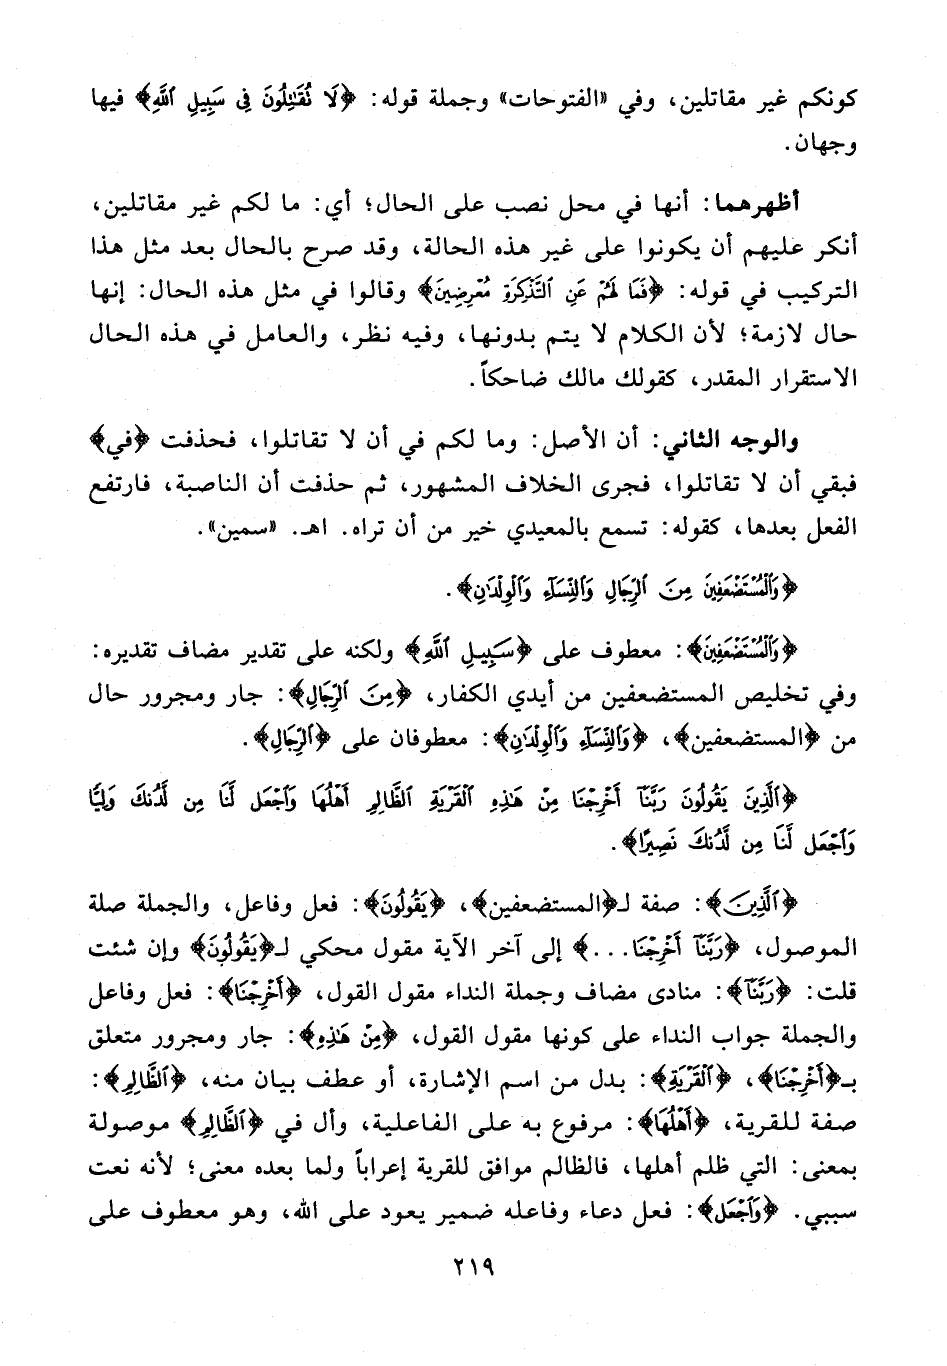 كونكم غير مقاتلين، وفي «الفتوحات» وجملة قوله: ﴿لَا تُقَاتِلُونَ فِي سَبِيلِ اللَّهِ﴾ فيها
وجهان.
أظهرهما: أنها في محل نصب على الحال؛ أي: ما لكم غير مقاتلين،
أنكر عليهم أن يكونوا على غير هذه الحالة، وقد صرح بالحال بعد مثل هذا
التركيب في قوله: ﴿فَمَا لَهُمْ عَنِ التَّذْكِرَةِ مُعْرِضِينَ﴾ وقالوا في مثل هذه الحال: إنها
حال لازمة؛ لأن الكلام لا يتم بدونها، وفيه نظر، والعامل في هذه الحال
الاستقرار المقدر، كقولك مالك ضاحكاً.
والوجه الثاني: أن الأصل: وما لكم في أن لا تقاتلوا، فحذفت ﴿في﴾
فبقي أن لا تقاتلوا، فجرى الخلاف المشهور، ثم حذفت أن الناصبة، فارتفع
الفعل بعدها، كقوله: تسمع بالمعيدي خير من أن تراه. اهـ. «سمين».
﴿وَالْمُسْتَضْعَفِينَ مِنَ الرِّجَالِ وَالنِّسَاءِ وَالْوِلْدَانِ﴾.
﴿وَالْمُسْتَضْعَفِينَ﴾: معطوف على ﴿سَبِيلِ اللَّهِ﴾ ولكنه على تقدير مضاف تقديره:
وفي تخليص المستضعفين من أيدي الكفار، ﴿مِنَ الرِّجَالِ﴾: جار ومجرور حال
من ﴿المستضعفين﴾، ﴿وَالنِّسَاءِ وَالْوِلْدَانِ﴾: معطوفان على ﴿الرِّجَالِ﴾.
﴿الَّذِينَ يَقُولُونَ رَبَّنَا أَخْرِجْنَا مِنْ هَذِهِ الْقَرْيَةِ الظَّالِمِ أَهْلُهَا وَاجْعَل لَّنَا مِن لَّدُنكَ وَلِيًّا
وَاجْعَل لَّنَا مِن لَّدُنكَ نَصِيرًا﴾.
﴿الَّذِينَ﴾: صفة لـ﴿المستضعفين﴾، ﴿يَقُولُونَ﴾: فعل وفاعل، والجملة صلة
الموصول، ﴿رَبَّنَا أَخْرِجْنَا...﴾ إلى آخر الآية مقول محكي لـ﴿يَقُولُونَ﴾ وإن شئت
قلت: ﴿رَبَّنَا﴾: منادى مضاف وجملة النداء مقول القول، ﴿أَخْرِجْنَا﴾: فعل وفاعل
والجملة جواب النداء على كونها مقول القول، ﴿مِنْ هَذِهِ﴾: جار ومجرور متعلق
بـ﴿أَخْرِجْنَا﴾، ﴿الْقَرْيَةِ﴾: بدل من اسم الإشارة، أو عطف بيان منه، ﴿الظَّالِمِ﴾:
صفة للقرية، ﴿أَهْلُهَا﴾: مرفوع به على الفاعلية، وأل في ﴿الظَّالِمِ﴾ موصولة
بمعنى: التي ظلم أهلها، فالظالم موافق للقرية إعراباً ولما بعده معنى؛ لأنه نعت
سببي. ﴿وَاجْعَل﴾: فعل دعاء وفاعله ضمير يعود على الله، وهو معطوف على
٢١٩